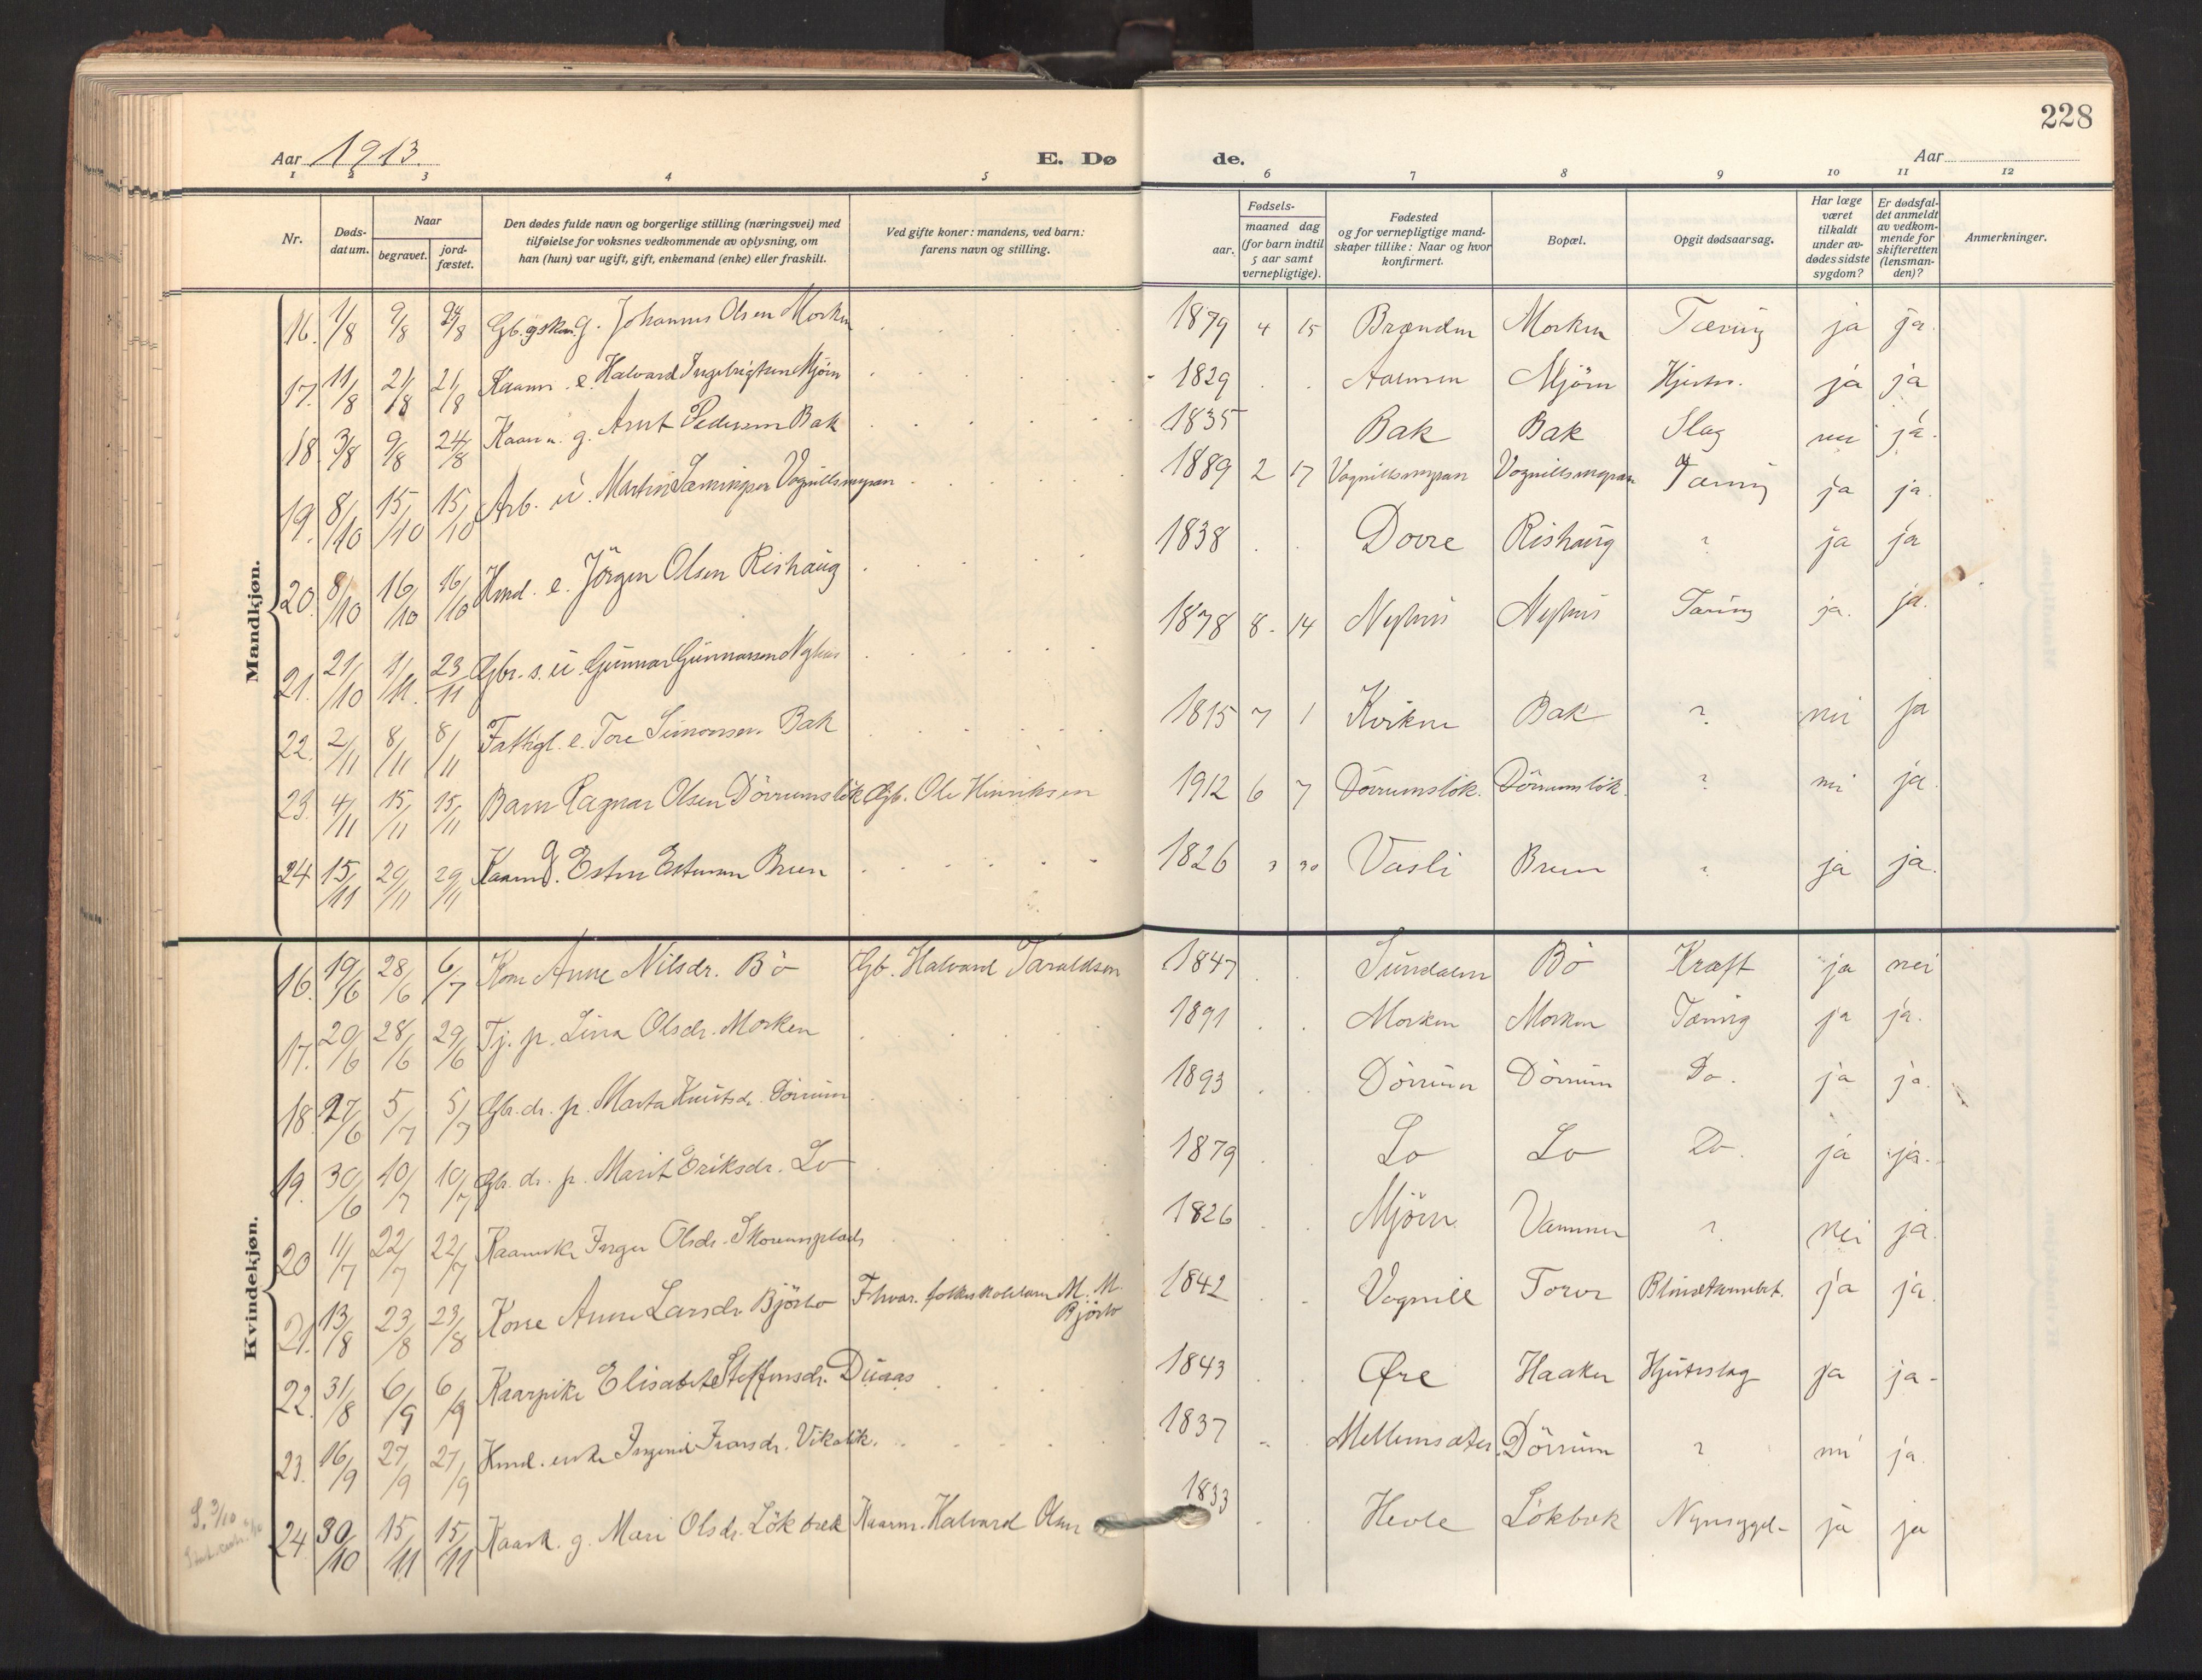 228
Aar 1913. E. Dø de. Aar
1 2 3 4 5 6 7 8 9 10 11 12
Nr.
Døds-
datum.
Naar
begravet.
jord-
fæstet.
Den dødes fulde navn og borgerlige stilling (næringsvei) med
tilføielse for voksnes vedkommende av oplysning, om
han (hun) var ugift, gift, enkemand (enke) eller fraskilt.
Ved gifte koner: mandens, ved barn:
farens navn og stilling.
Fødsels-
aar.
maaned dag
(for barn indtil
5 aar samt
vernepligtige).
Fødested
og for vernepligtige mand-
skaper tillike: Naar og hvor
konfirmert.
Bopæl.
Opgit dødsaarsag.
Har læge
været
tilkaldt
under av-
dødes sidste
sygdom?
Er dødsfal-
det anmeldt
av vedkom-
mende for
skifteretten
(lensman-
den)?
Anmerkninger.
Mandkjøn.
16. 1/8 9/8 24/8 Johannes Olsen Morken 1879 4 15 Brænden Morken Tæring ja ja.
17. 11/8 21/8 21/8 Kaarm. e. Halvard Ingebrigtsen Mjöen 1829 Aalmen Mjöen Hjerten. ja ja
18. 3/8 9/8 24/8 Kaarm. g. Arnt Pedersen Bak 1835 Bak Bak Slag nei ja.
19. 8/10 15/10 15/10 Arb. ŭ. Martin Vognillsmyran 1889 2 17 Vognillsmyran Vognillsmyran Tæring ja ja.
20. 8/10 16/10 16/10 Hmd. e. Jörgen Olsen Rishaŭg 1838 Dovre Rishaŭg ? ja ja
21. 21/10 1/11. 23/11 Gbr. s. ŭ. Gŭnnar Gŭnnarsen Nyhus 1878 8 14 Nyhus Nyhus Tæring ja. ja.
22. 2/11 8/11 8/11 Fattigl. e. Tore Simonsen Bak 1815 7 1 Kvikne Bak ? nei ja
23. 4/11 15/11 15/11 Barn Ragnar Olsen Dörrumslök Gb. Ole Hinriksen 1912 6 7 Dörrumslök. Dörrumslök. ? nei ja.
24 15/11 29/11 29/11 Kaarm. g. Esten Estensen Bruen 1826 3 30 Vasli Bruen ? ja ja.
Kvindekjøn.
16. 19/6 28/6 6/7 Kone Anne Nilsdr. Bö Gb. Halvard Taraldsen 1847 Sŭndalen Bö Kræft ja nei
17. 20/6 28/6 29/6 Tj. p. Lina Olsdr. Morken 1891 Morken Morken Tæring ja ja.
18. 27/6 5/7 5/7 Gbr. dr. p. Marta Knŭtsdr. Dörrŭm 1893 Dörrŭm Dörrŭm Do. ja ja.
19. 30/6 10/7 10/7 Gbr. dr. p. Marit Eriksdr. Lo 1879 Lo Lo Do. ja ja.
20 11/7 22/7 22/7 Kaarenke Inger Olsdr. 1826 Mjöen Vammen ? nei ja.
21. 13/8 23/8 23/8 Kone Anne Larsdr. Björbo Fhvær. folkeskolelærer M. M.
Björbo 1842 Vognill Torve ja ja.
22. 31/8 6/9 6/9 Kaarpike Elisabete Steffensdr. Dŭaas 1843 Øre Haaker Hjerteslag ja ja-
23. 16/9 27/9 27/9 Hmd. enke Ingeni Ivarsdr. Vikalök. 1837 Mellemsæter. Dörrŭm ? nei ja.
24. 30/10 15/11 15/11 Kaark. g. Mari Olsdr. Lökbæk Kaarm. Halvard Olsen 1833 Hevle Lökbæk ja ja
S. 3/10